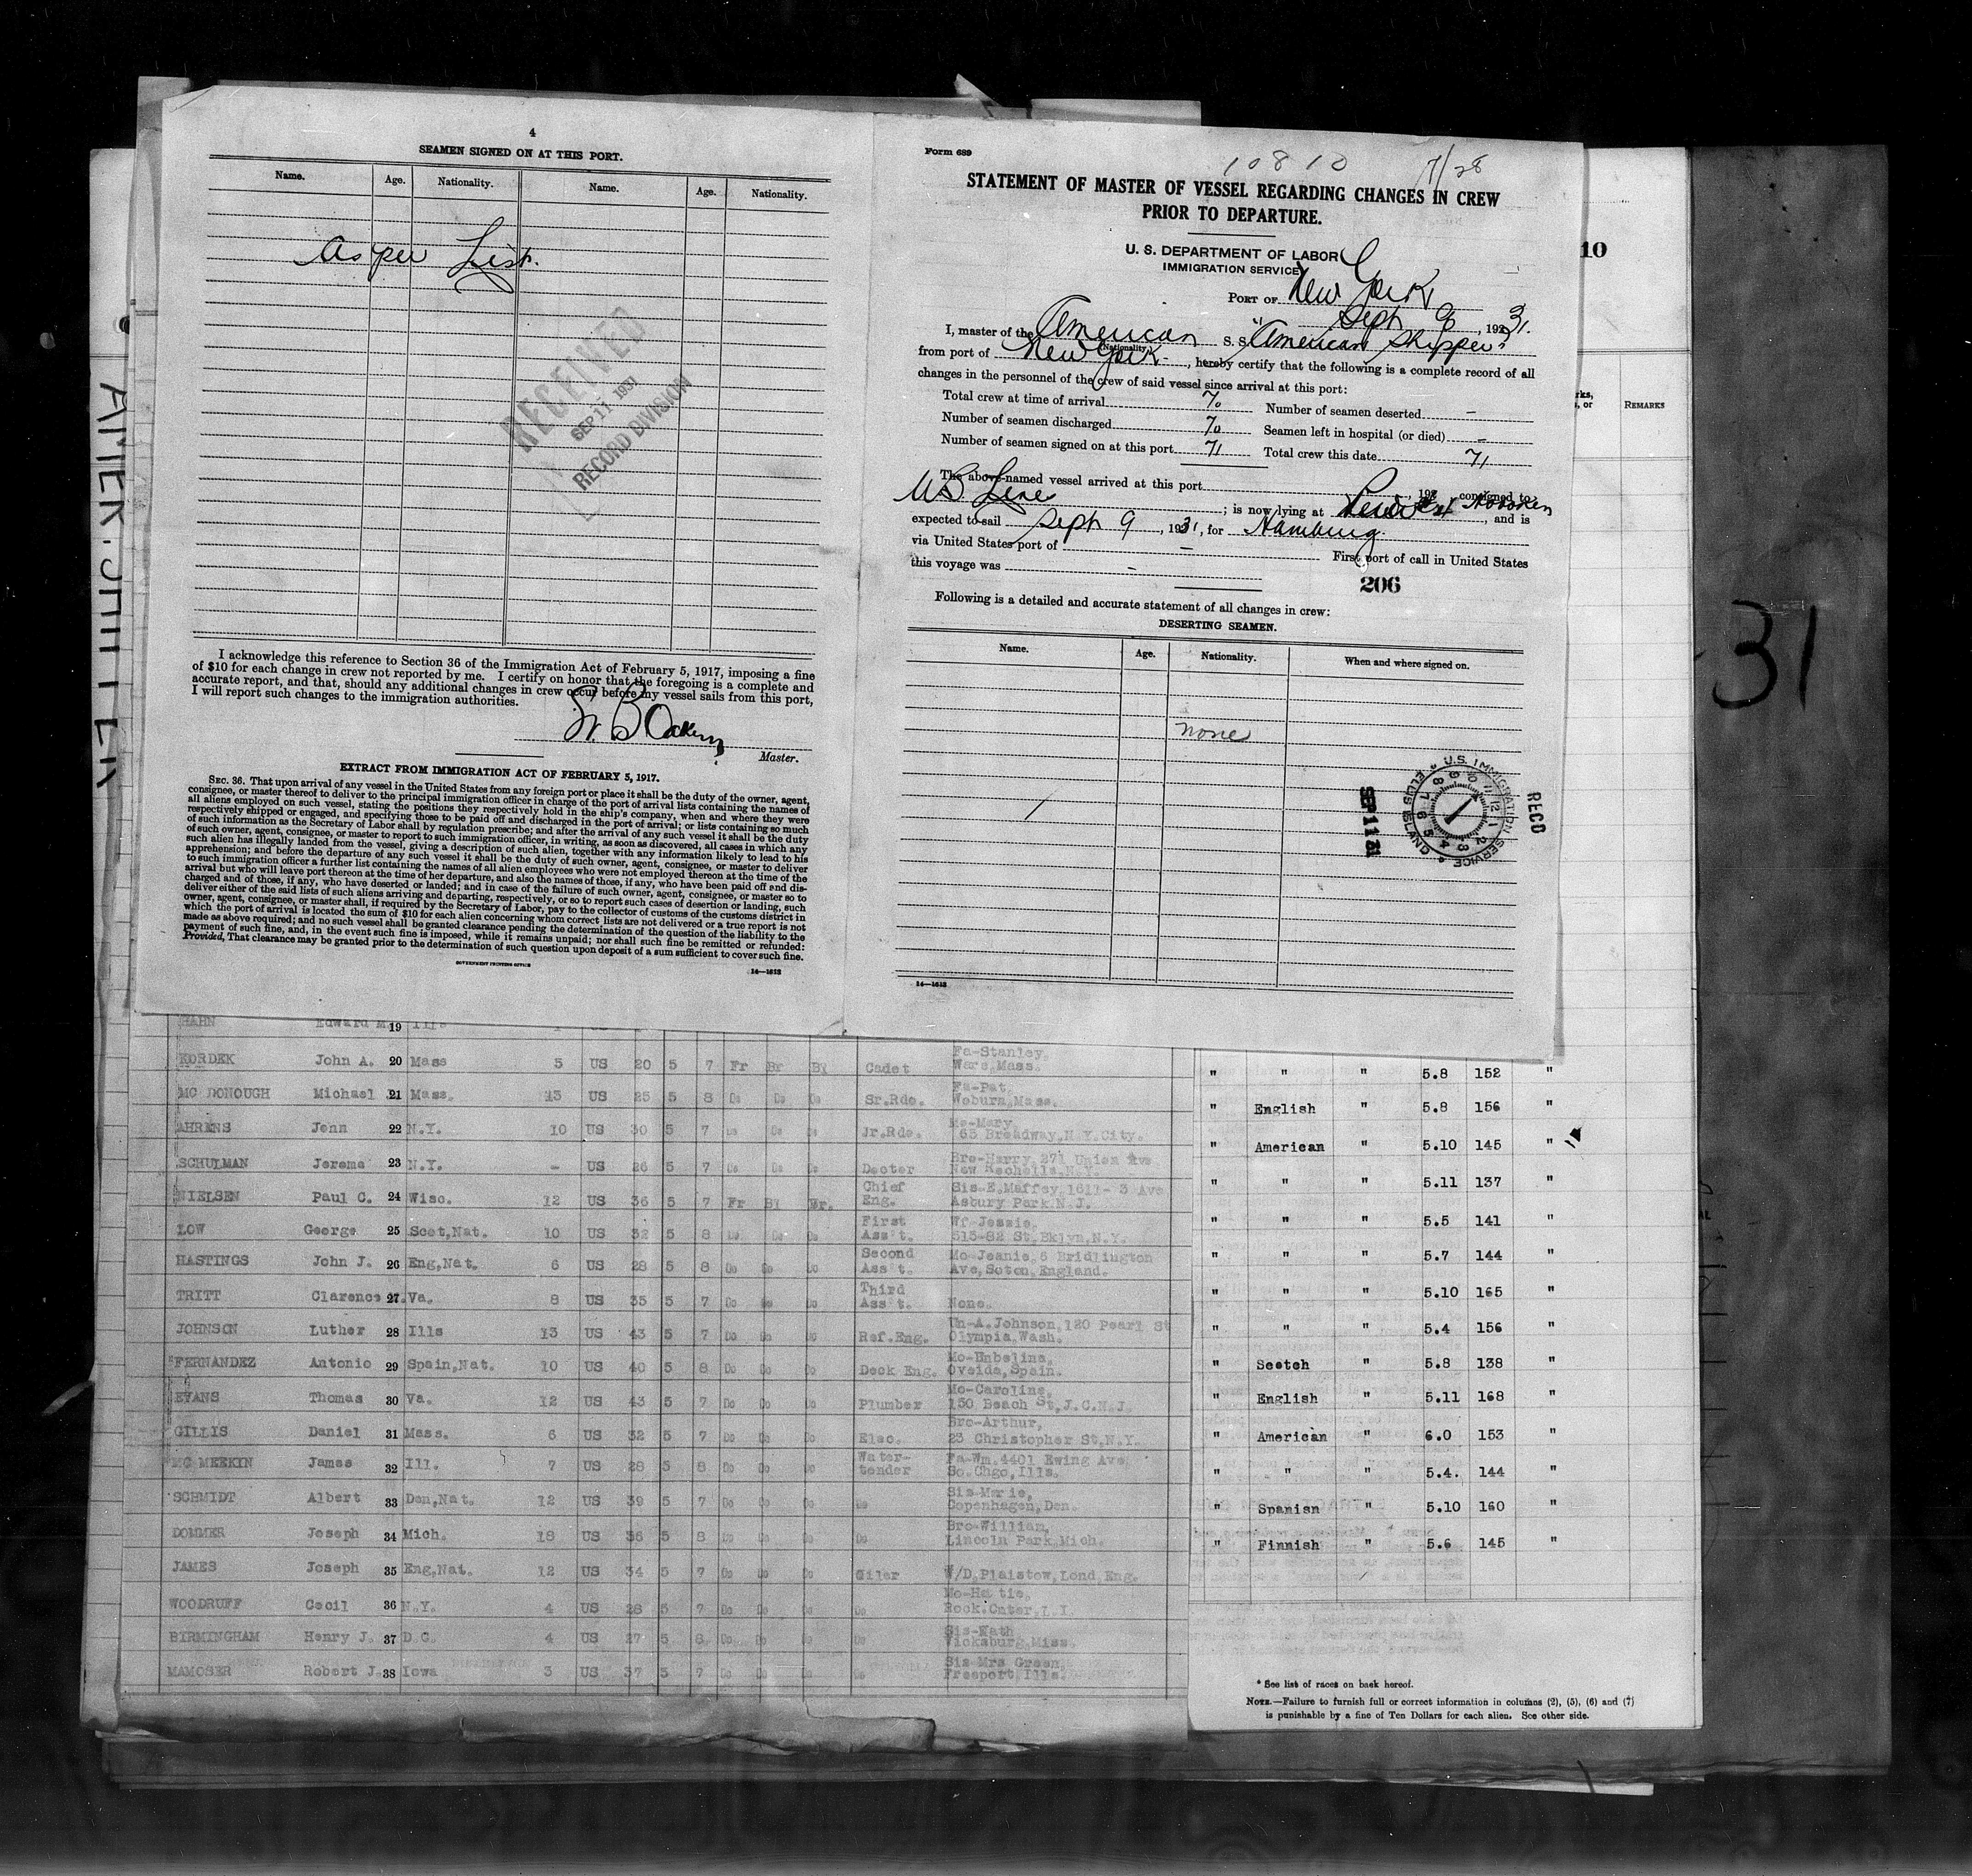 4
SEAMEN SIGNED ON AT THIS PORT.
Name. Age. Nationality. Name. Age. Nationality.
As per List.
RECEIVED
SEP 11 1931
RECORD DIVISION
I acknowledge this reference to Section 36 of the Immigration Act of February 5, 1917, imposing a fine
of $10 for each change in crew not reported by me. I certify on honor that the foregoing is a complete and
accurate report, and that, should any additional changes in crew occur before my vessel sails from this port,
I will report such changes to the immigration authorities.
Master.
EXTRACT FROM IMMIGRATION ACT OF FEBRUARY 5, 1917.
SEC. 36. That upon arrival of any vessel in the United States from any foreign port or place it shall be the duty of the owner, agent,
consignee, or master thereof to deliver to the principal immigration officer in charge of the port of arrival lists containing the names of
all aliens employed on such vessel, stating the positions they respectively hold in the ship's company, when and where they were
respectively shipped or engaged, and specifying those to be paid off and discharged in the port of arrival; or lists containing so much
of such information as the Secretary of Labor shall by regulation prescribe; and after the arrival of any such vessel it shall be the duty
of such owner, agent, consignee, or master to report to such immigration officer, in writing, as soon as discovered, all cases in which any
such alien has illegally landed from the vessel, giving a description of such alien, together with any information likely to lead to his
apprehension; and before the departure of any such vessel it shall be the duty of such owner, agent, consignee, or master to deliver
to such immigration officer a further list containing the names of all alien employees who were not employed thereon at the time of the
arrival but who will leave port thereon at the time of her departure, and also the names of those, if any, who have been paid off and dis-
charged and of those, if any, who have deserted or landed; and in case of the failure of such owner, agent, consignee, or master so to
deliver either of the said lists of such aliens arriving and departing, respectively, or so to report such cases of desertion or landing, such
owner, agent, consignee, or master shall, if required by the Secretary of Labor, pay to the collector of customs of the customs district in
which the port of arrival is located the sum of $10 for each alien concerning whom correct lists are not delivered or a true report is not
made as above required; and no such vessel shall be granted clearance pending the determination of the question of the liability to the
payment of such fine, and, in the event such fine is imposed, while it remains unpaid; nor shall such fine be remitted or refunded:
Provided, That clearance may be granted prior to the determination of such question upon deposit of a sum sufficient to cover such fine.
GOVERNMENT PRINTING OFFICE
14—1613
Form 689
10810 7/28
STATEMENT OF MASTER OF VESSEL REGARDING CHANGES IN CREW
PRIOR TO DEPARTURE.
U. S. DEPARTMENT OF LABOR
IMMIGRATION SERVICE
PORT OF New York
Sept 9, 1931.
I, master of the American S. S. "American Shipper"
(Nationality)
from port of New York, hereby certify that the following is a complete record of all
changes in the personnel of the crew of said vessel since arrival at this port:
Total crew at time of arrival 70 Number of seamen deserted —
Number of seamen discharged 70 Seamen left in hospital (or died) —
Number of seamen signed on at this port 71 Total crew this date 71
The above-named vessel arrived at this port , 192 , consigned to
US Line ; is now lying at Hoboken, and is
expected to sail Sept 9, 1931, for Hamburg.
via United States port of — First port of call in United States
this voyage was —
206
Following is a detailed and accurate statement of all changes in crew:
DESERTING SEAMEN.
Name. Age. Nationality. When and where signed on.
none
SEP 11 31
U.S. IMMIGRATION SERVICE ELLIS ISLAND
RECD
14—1613
10
REMARKS
31
AMER. SHIPPER
HAHN Edward M. 19 Ills
KORDEK John A. 20 Mass 5 US 20 5 7 Fr Br Bl Cadet Fa-Stanley, Ware, Mass.
MC DONOUGH Michael 21 Mass. 13 US 25 5 8 Do Do Do Sr.Rdo. Fa-Pat, Woburn, Mass.
AHRENS John 22 N.Y. 10 US 30 5 7 Do Do Do Jr.Rdo. Mo-Mary, 65 Broadway, N.Y.City.
SCHULMAN Jerome 23 N.Y. – US 26 5 7 Do Do Do Doctor Bro-Harry, 271 Union Ave New Rochelle, N.Y.
NIELSEN Paul C. 24 Wisc. 12 US 36 5 7 Fr Bl Br. Chief Eng. Sis-E.Maffey, 1611-3 Ave Asbury Park N.J.
LOW George 25 Scot,Nat. 10 US 32 5 8 Do Do Do First Ass't. Wf-Jessie, 515-82 St.Bklyn,N.Y.
HASTINGS John J. 26 Eng,Nat. 6 US 28 5 8 Do Do Do Second Ass't. Mo-Jeanie, 6 Bridlington Ave, Soton, England.
TRITT Clarence 27 Va. 8 US 35 5 7 Do Do Do Third Ass't. None.
JOHNSON Luther 28 Ills 13 US 43 5 7 Do Do Ref.Eng. Un-A.Johnson, 120 Pearl St Olympia, Wash.
FERNANDEZ Antonio 29 Spain,Nat. 10 US 40 5 8 Do Do Do Deck Eng. Mo-Unbelina, Oveida, Spain.
EVANS Thomas 30 Va. 12 US 43 5 7 Do Do Do Plumber Mo-Caroline, 150 Beach St, J.C.N.J.
GILLIS Daniel 31 Mass. 6 US 32 5 7 Do Do Do Elec. Bro-Arthur, 23 Christopher St, N.Y.
MC MEEKIN James 32 Ill. 7 US 28 5 8 Do Do Do Water-tender Fa-Wm. 4401 Ewing Ave, So.Chgo, Ills.
SCHMIDT Albert 33 Den,Nat. 12 US 39 5 7 Do Do Do Do Sis-Marie, Copenhagen, Den.
DOMMER Joseph 34 Mich. 18 US 36 5 8 Do Do Do Do Bro-William, Lincoln Park, Mich.
JAMES Joseph 35 Eng,Nat. 12 US 34 5 7 Do Do Do Oiler W/D, Plaistow, Lond, Eng.
WOODRUFF Cecil 36 N.Y. 4 US 28 5 7 Do Do Do Do Mo-Hattie, Rock.Cnter, L.I.
BIRMINGHAM Henry J. 37 D.C. 4 US 27 5 8 Do Do Do Do Sis-Kath Vicksburg, Miss.
MAMOSER Robert J. 38 Iowa 3 US 37 5 7 Do Do Do Do Sis-Mrs Green, Freeport, Ills.
" " " 5.8 152 "
" English " 5.8 156 "
" American " 5.10 145 "
" " " 5.11 137 "
" " " 5.5 141 "
" " " 5.7 144 "
" " " 5.10 165 "
" " " 5.4 156 "
" Scotch " 5.8 138 "
" English " 5.11 168 "
" American " 6.0 153 "
" " " 5.4. 144 "
" Spanish " 5.10 160 "
" Finnish " 5.6 145 "
* See list of races on back hereof.
NOTE.—Failure to furnish full or correct information in columns (2), (5), (6) and (7)
is punishable by a fine of Ten Dollars for each alien. See other side.